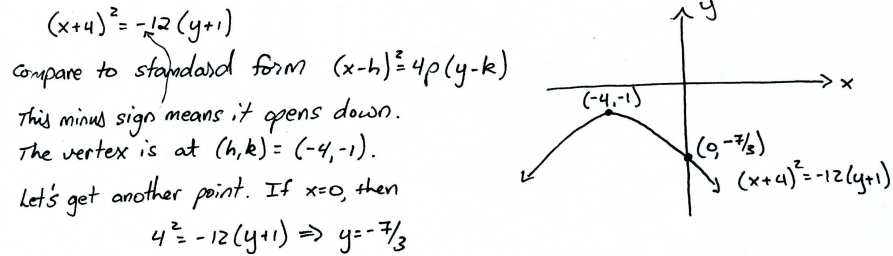 (x+4)²=-12(y+1)
Compare to standard form (x-h)²=4p(y-k)
This minus sign means it opens down.
The vertex is at (h,k)=(-4,-1).
Let's get another point. If x=0, then
4²=-12(y+1) ⇒ y=-7/3
y
x
(-4,-1)
(0,-7/3)
(x+4)²=-12(y+1)